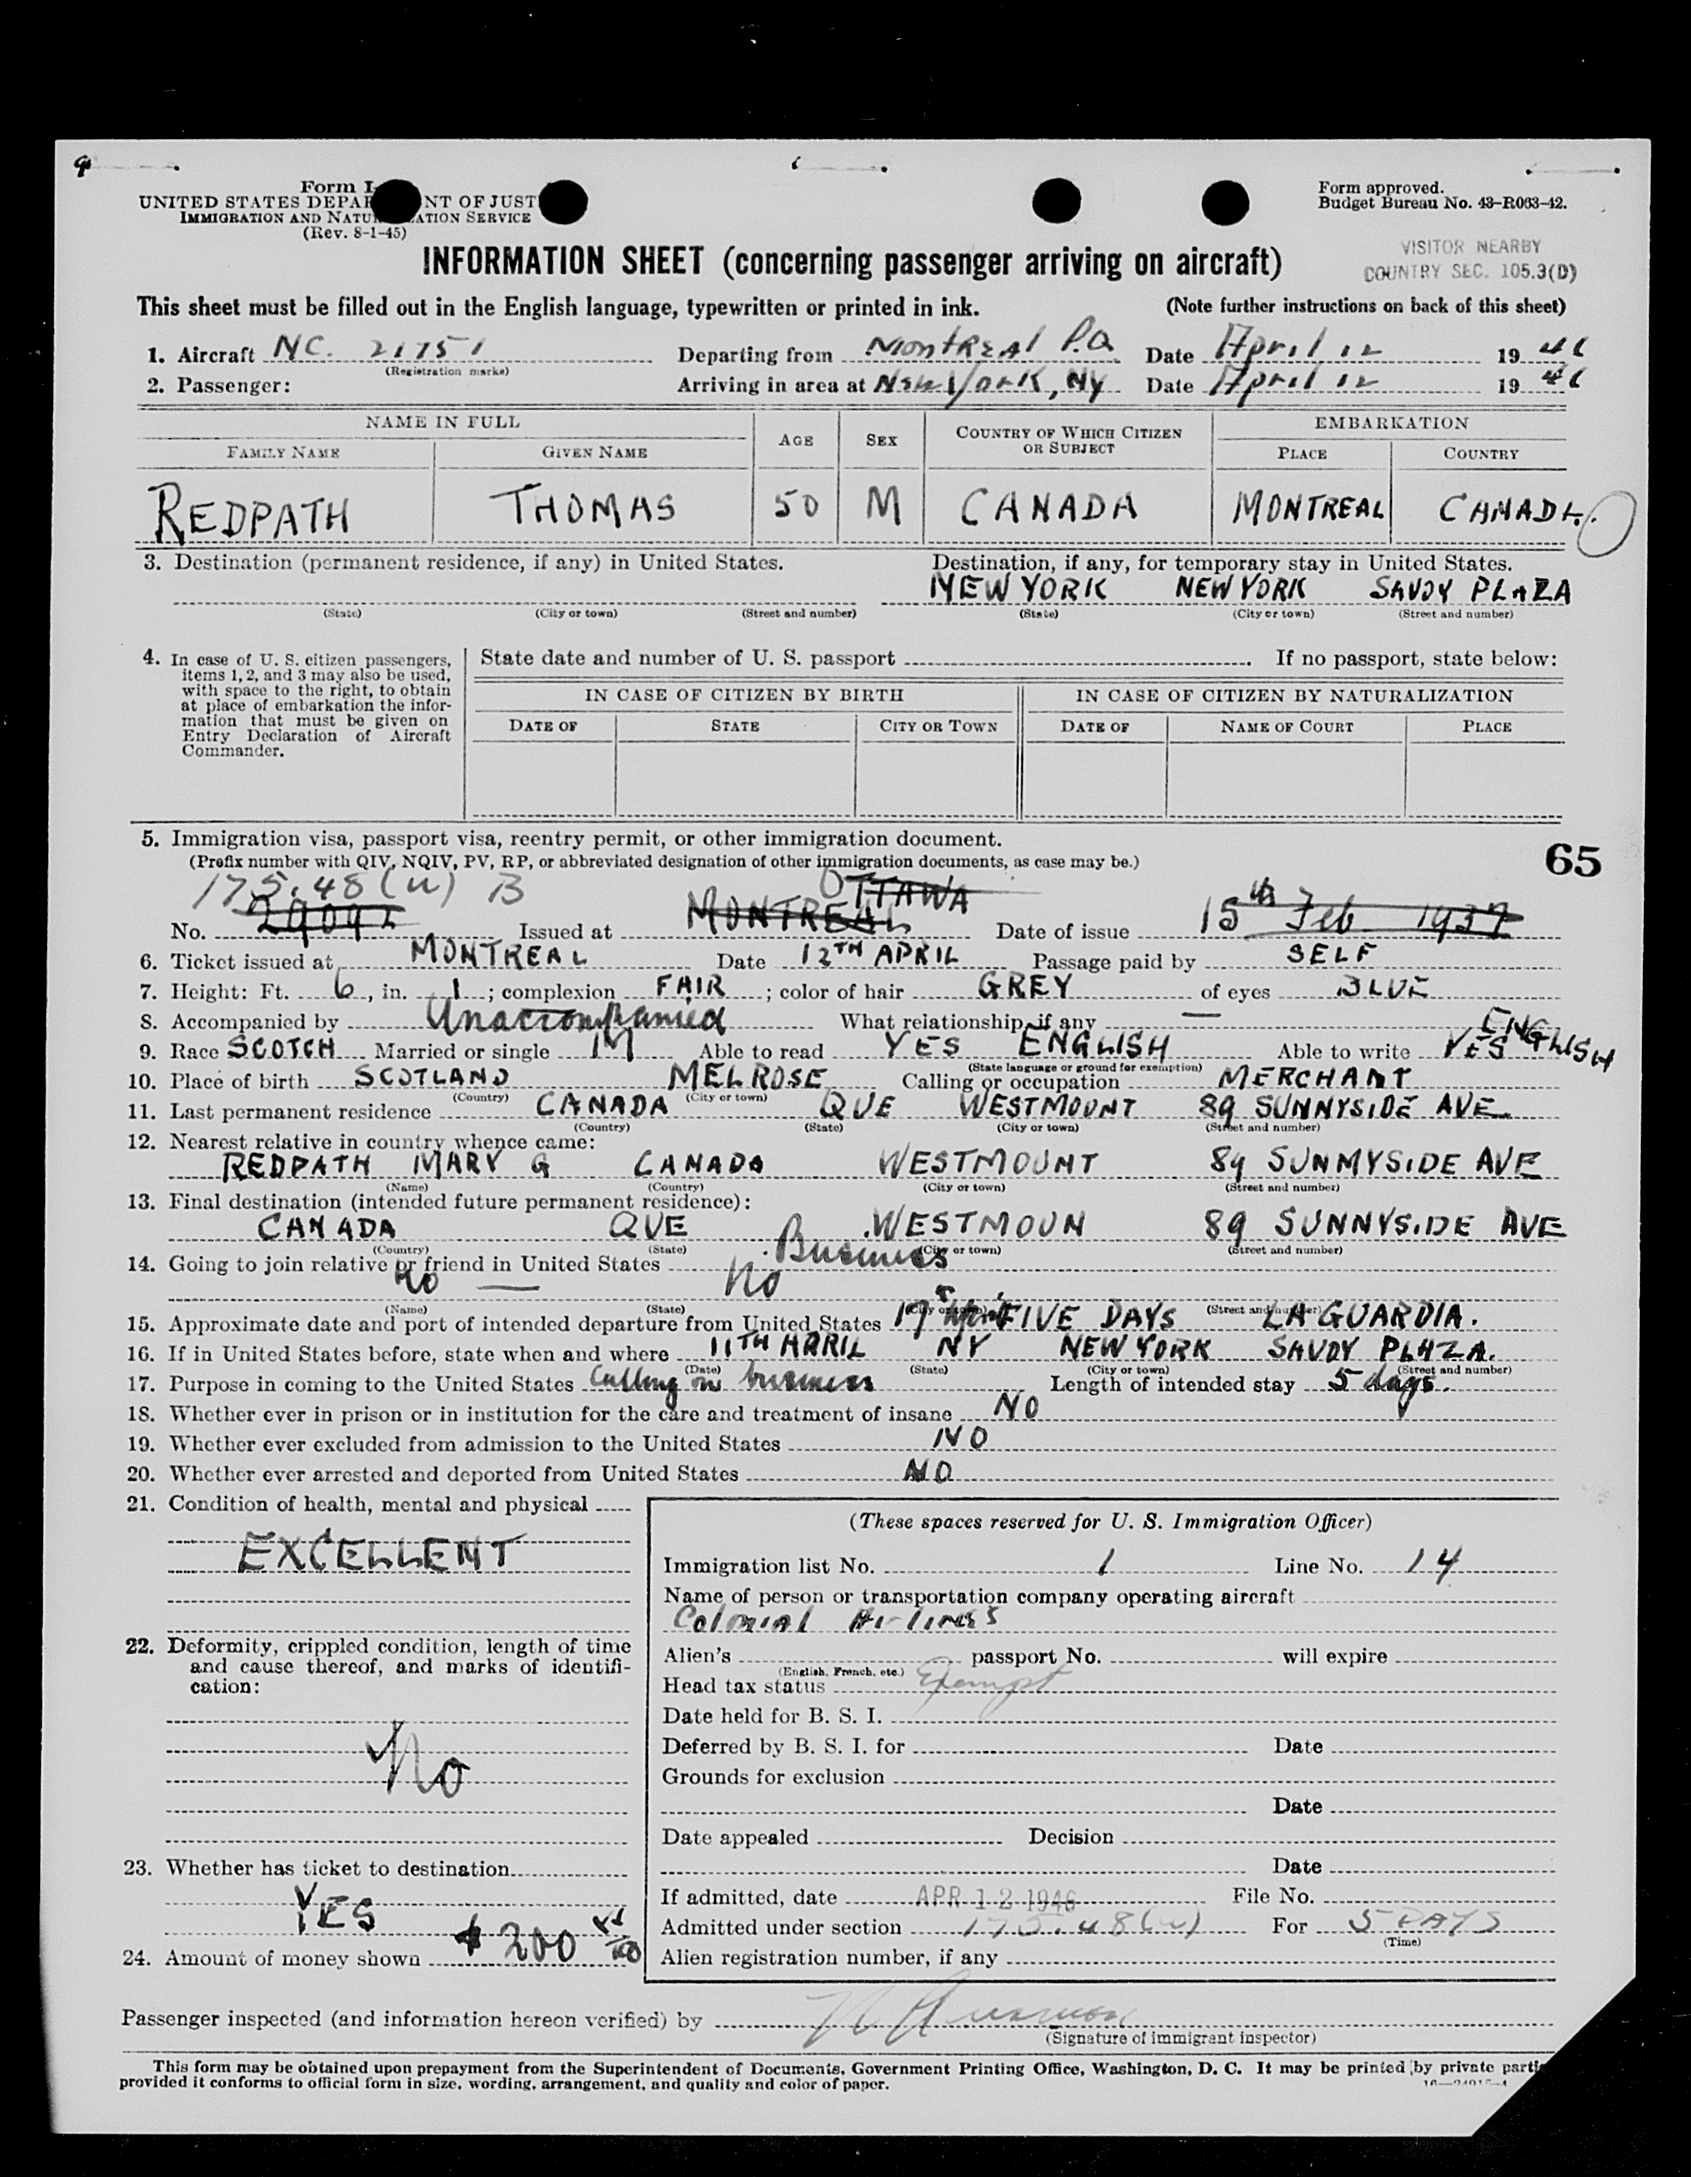 Form I-
UNITED STATES DEPAR NT OF JUST
IMMIGRATION AND NATU ATION SERVICE
(Rev. 8-1-45)
Form approved.
Budget Bureau No. 43-R063-42.
INFORMATION SHEET (concerning passenger arriving on aircraft)
VISITOR NEARBY
COUNTRY SEC. 105.3(D)
This sheet must be filled out in the English language, typewritten or printed in ink. (Note further instructions on back of this sheet)
1. Aircraft NC. 21751 Departing from Montreal P.Q. Date April 12 19 46
(Registration marks)
2. Passenger: Arriving in area at New York, NY Date April 12 19 46
NAME IN FULL EMBARKATION
FAMILY NAME GIVEN NAME AGE SEX COUNTRY OF WHICH CITIZEN OR SUBJECT PLACE COUNTRY
REDPATH THOMAS 50 M CANADA MONTREAL CANADA.
3. Destination (permanent residence, if any) in United States. Destination, if any, for temporary stay in United States.
NEW YORK NEW YORK SAVOY PLAZA
(State) (City or town) (Street and number) (State) (City or town) (Street and number)
4. In case of U. S. citizen passengers, items 1, 2, and 3 may also be used, with space to the right, to obtain at place of embarkation the information that must be given on Entry Declaration of Aircraft Commander.
State date and number of U. S. passport . If no passport, state below:
IN CASE OF CITIZEN BY BIRTH IN CASE OF CITIZEN BY NATURALIZATION
DATE OF STATE CITY OR TOWN DATE OF NAME OF COURT PLACE
5. Immigration visa, passport visa, reentry permit, or other immigration document.
(Prefix number with QIV, NQIV, PV, RP, or abbreviated designation of other immigration documents, as case may be.)
65
175.48(u) B OTTAWA
No. 29092 Issued at MONTREAL Date of issue 15th Feb 1937
6. Ticket issued at MONTREAL Date 12TH APRIL Passage paid by SELF
7. Height: Ft. 6, in. 1; complexion FAIR; color of hair GREY of eyes BLUE
8. Accompanied by Unaccompanied What relationship, if any —
9. Race SCOTCH Married or single M Able to read YES ENGLISH Able to write YES ENGLISH
(State language or ground for exemption)
10. Place of birth SCOTLAND MELROSE Calling or occupation MERCHANT
(Country) (City or town)
11. Last permanent residence CANADA QUE WESTMOUNT 89 SUNNYSIDE AVE
(Country) (State) (City or town) (Street and number)
12. Nearest relative in country whence came:
REDPATH MARY G CANADA WESTMOUNT 89 SUNNYSIDE AVE
(Name) (Country) (City or town) (Street and number)
13. Final destination (intended future permanent residence):
CANADA QUE WESTMOUN 89 SUNNYSIDE AVE
(Country) (State) (City or town) (Street and number)
14. Going to join relative or friend in United States Business
No — No
(Name) (State) (City or town) (Street and number)
15. Approximate date and port of intended departure from United States 17 April FIVE DAYS LA GUARDIA.
16. If in United States before, state when and where 11TH APRIL NY NEW YORK SAVOY PLAZA.
(Date) (State) (City or town) (Street and number)
17. Purpose in coming to the United States Calling on business Length of intended stay 5 days.
18. Whether ever in prison or in institution for the care and treatment of insane NO
19. Whether ever excluded from admission to the United States NO
20. Whether ever arrested and deported from United States NO
21. Condition of health, mental and physical
EXCELLENT
22. Deformity, crippled condition, length of time and cause thereof, and marks of identification:
No
23. Whether has ticket to destination
YES
24. Amount of money shown $200 xx/100
(These spaces reserved for U. S. Immigration Officer)
Immigration list No. 1 Line No. 14
Name of person or transportation company operating aircraft
Colonial Airlines
Alien's passport No. will expire
(English, French, etc.)
Head tax status Exempt
Date held for B. S. I.
Deferred by B. S. I. for Date
Grounds for exclusion
Date
Date appealed Decision
Date
If admitted, date APR 12 1946 File No.
Admitted under section 175.48(u) For 5 DAYS
(Time)
Alien registration number, if any
Passenger inspected (and information hereon verified) by
(Signature of immigrant inspector)
This form may be obtained upon prepayment from the Superintendent of Documents, Government Printing Office, Washington, D. C. It may be printed by private parti
provided it conforms to official form in size, wording, arrangement, and quality and color of paper.